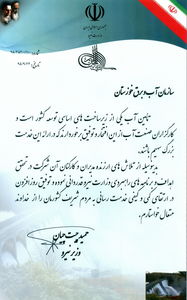 سازمان آب و برق خوزستان
تامین آب یکی از زیرساخت های اساسی توسعه کشور است و
کارگزاران صنعت آب از این افتخار و توفیق برخوردارند که در ارائه این خدمت
بزرگ سهیم باشند.
بدینوسیله از تلاش های ارزنده مدیران و کارکنان آن شرکت در تحقق
اهداف و برنامه های راهبردی وزارت نیرو قدردانی نموده و توفیق روزافزون
در ارتقای کمی و کیفی خدمت رسانی به مردم شریف کشورمان را از خداوند
متعال خواستارم.
حمید چیت چیان
وزیر نیرو